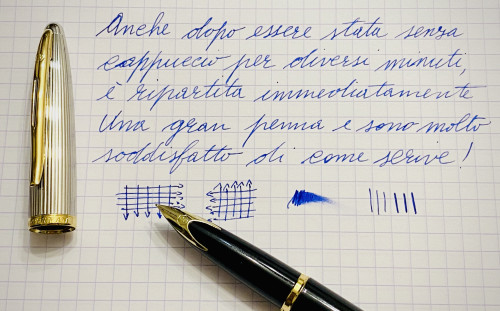 Anche dopo essere stata senza
cappuccio per diversi minuti,
è ripartita immediatamente
Una gran penna e sono molto
soddisfatto di come scrive!